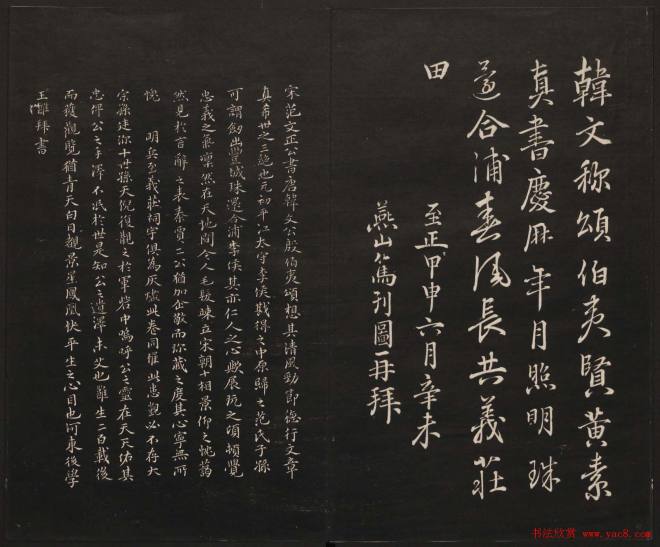 韓文称頌伯夷賢黄素
真書慶歷年月照明珠
還合浦春風長共義莊
田
至正甲申六月辛未
燕山篤列圖再拜
宋范文正公書唐韓文公殷伯夷頌想其清風勁節德行文章
真希世之三絶也元初平江太守李侯戡得之中原歸之范氏子孫
可謂劔出豐城珠還合浦李侯其亦仁人之心歟展玩之頃頓覺
忠義之氣凛然在天地間令人毛髮竦立宋朝十相景仰之忱藹
然見於言辭之表秦賈二公猶加企敬而珎藏之度其心寧無所
愧 明兵至義莊祠宇俱為灰燼此卷同罹此患観必不存大
宗孫廷珎十世孫天倪復観之於軍砦中嗚呼公之靈在天天佑其
忠俾公之手澤不泯於世是知公之遺澤未艾也雖生二百載後
而獲觀覧猶青天白日覩景星鳳凰快平生之心目也河東後學
王 拜書
书法欣赏 www.yac8.com